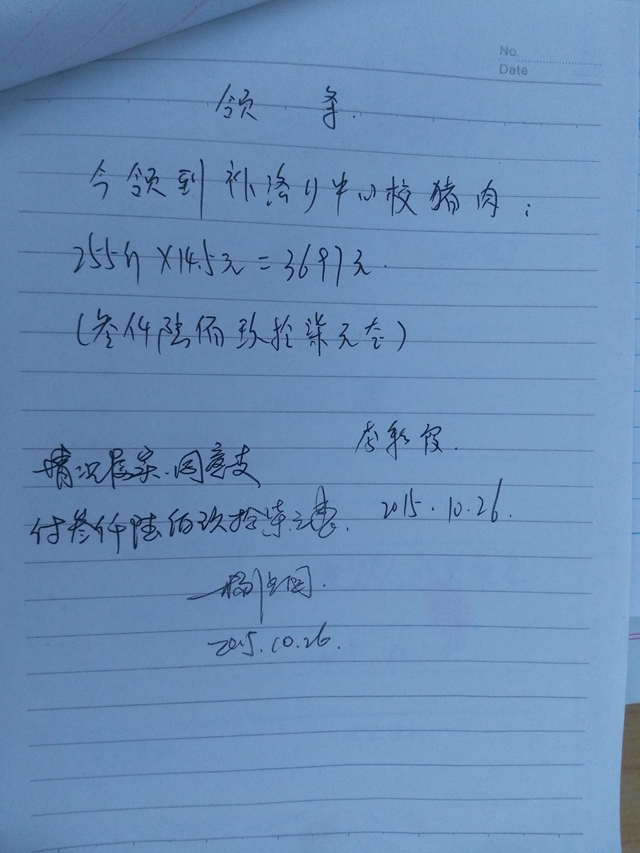 No.
Date
领 条.
今领到补洛乡中心校猪肉：
255斤×14.5元=3697元.
(叁仟陆佰玖拾柒元奎)
李彩霞.
情况属实.同意支
付叁仟陆佰玖拾柒元整.
2015.10.26.
2015.10.26.